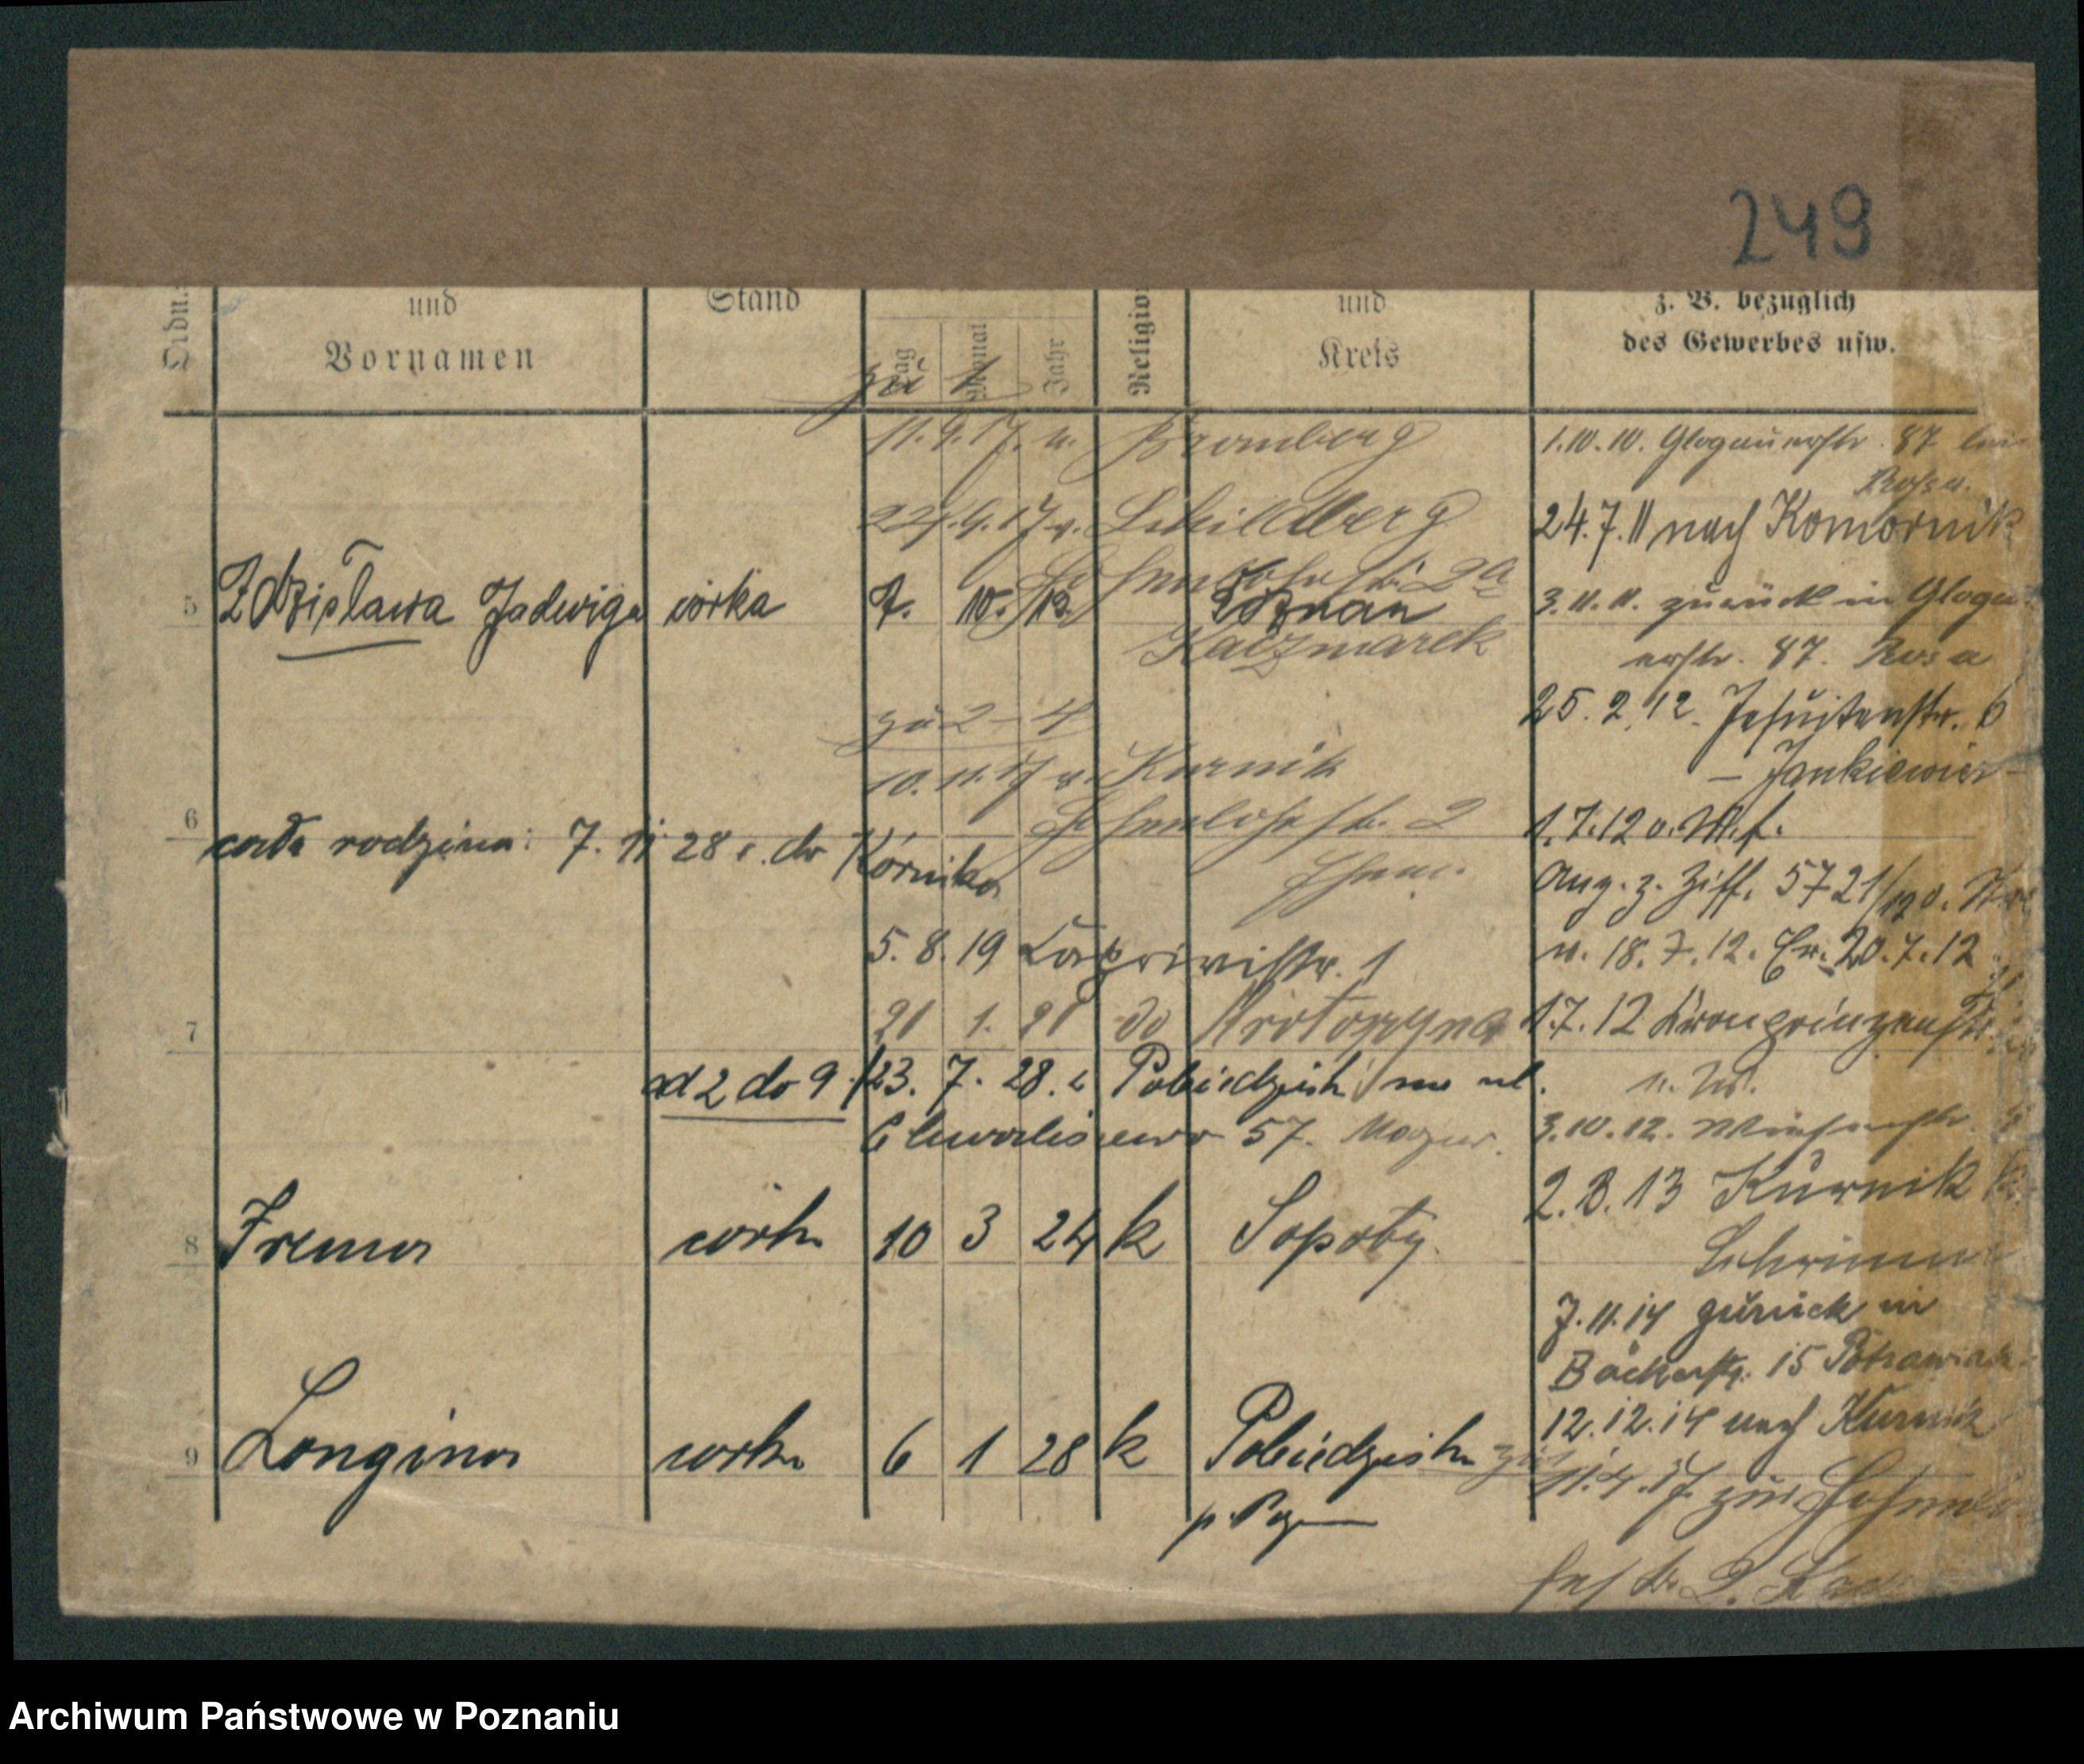 249
Ordn.
und
Vornamen
Stand
Tag
Monat
Jahr
Religion
und
Kreis
z. B. bezüglich
des Gewerbes usw.
zu 1
11.9.17. v. Bromberg
22.9.17 v. Schildberg
Hohenlohestr. 2a
5 Zdzisława Jadwiga córka 7. 10. 12 Poznań
Kaczmarek
zu 2 – 4
10.11.17 v. Kurnik
Hohenlohestr. 2
6
cała rodzina: 7. 11 28 r. do Kórnika
5. 8. 19 Caprivistr. 1
7
21 1. 21 do Krotoszyna
ad 2 do 9 23. 7. 28. z Pobiedzisk na ul.
Chwaliszewo 57. Mazur.
8 Irena córka 10 3 24 k Sopoty
9 Longina córka 6 1 28 k Pobiedziska
p. Pozn
1.10.10. Glogauerstr. 87 bei
Rosa.
24.7.11 nach Komornik
3.11.11. zurück in Glogau
erstr. 87. Rosa
25.2.12. Jesuitenstr. 6
– Jankiewicz –
1.7.12 o. M. f.
Ang. z. Ziff. 5721/12
v. 18.7.12. Er. 20.7.12
1.7.12 Kronprinzenstr.
3.10.12. Wiesenstr.
2.8.13 Kurnik K.
Schrimm
7.11.14 zurück in
Bäckerstr. 15 Potrawiak
12.12.14 nach Kurnik
11.4.17. zur Hohenlo
hestr. 2.
Archiwum Państwowe w Poznaniu